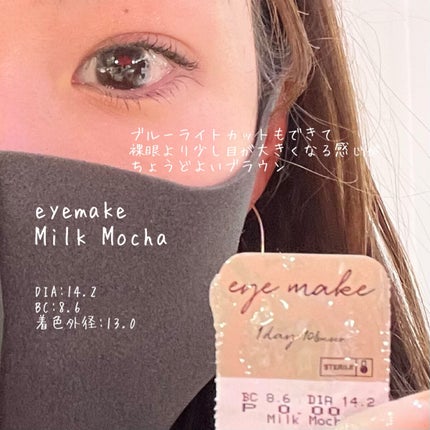 ブルーライトカットもできて
裸眼より少し目が大きくなる感じが
ちょうどよいブラウン
eyemake
Milk Mocha
DIA:14.2
BC:8.6
着色外径:13.0
eye make
1day
STERILE
BC 8.6 DIA 14.2
P 0.00
Milk Moch